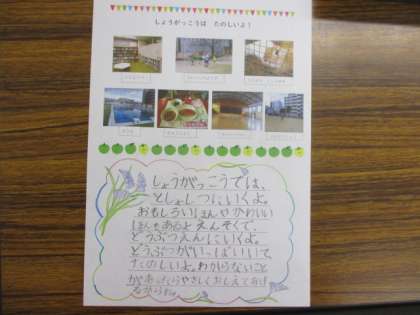 しょうがっこうは たのしいよ！
しょうがっこうでは、
としょしつにいくよ。
おもしろいほんやかわいい
ほんもあるよ えんそくで、
どうぶつえんにいくよ。
どうぶつがいっぱいいて、
たのしいよ。わからないこと
があったらやさしくおしえてあげ
るから